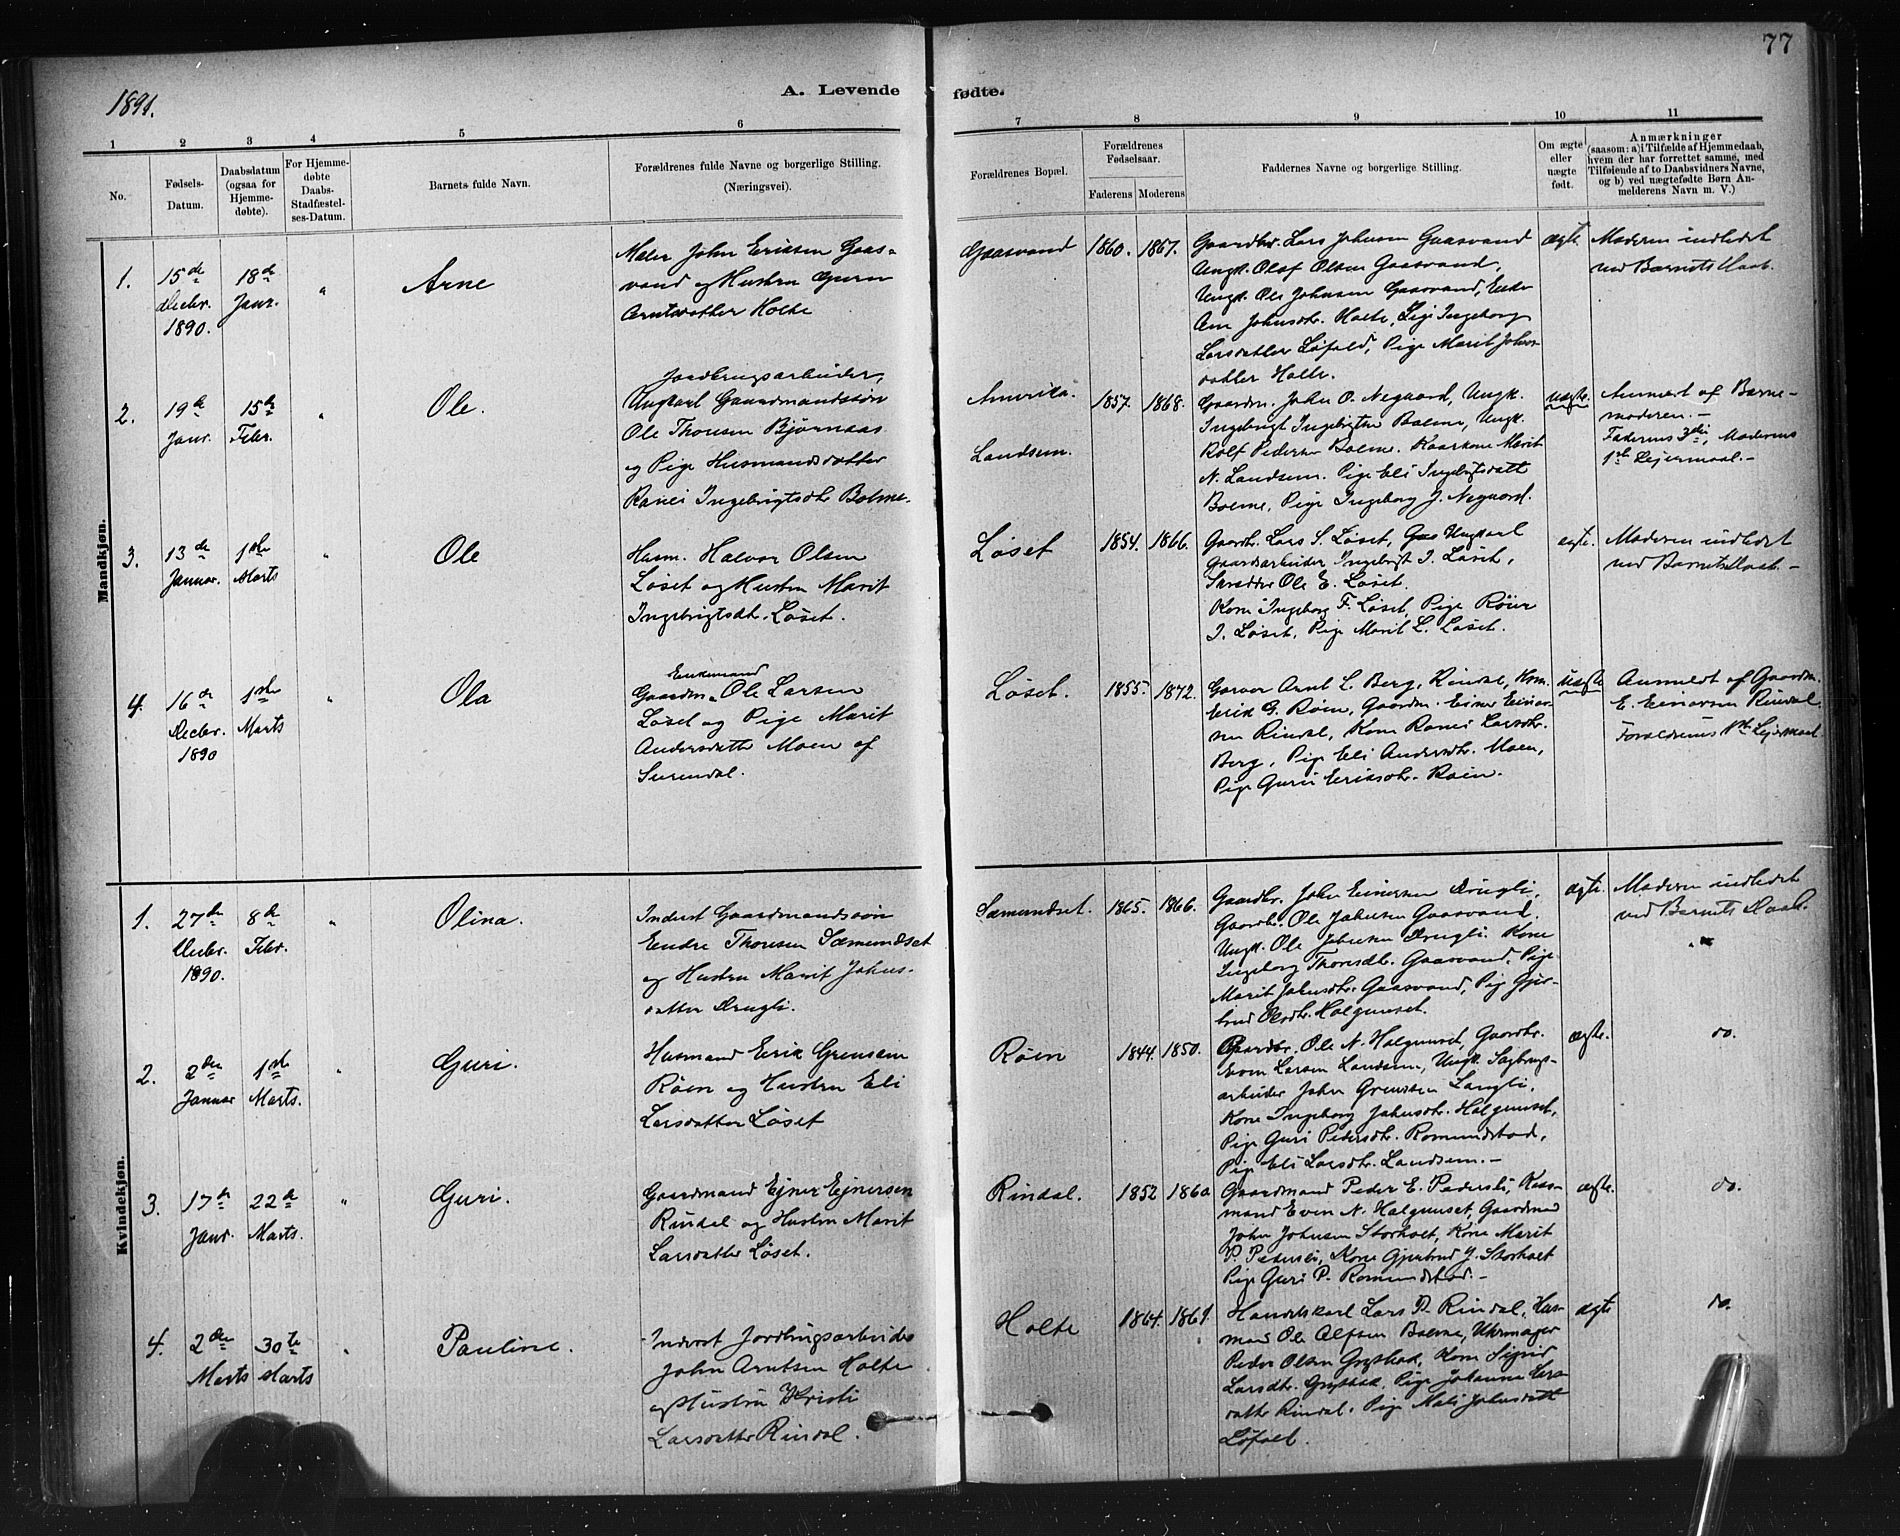 77
1891.
A. Levende fødte.
1 2 3 4 5 6 7 8 9 10 11
No.
Fødsels-Datum.
Daabsdatum (ogsaa for Hjemmedøbte).
For Hjemmedøbte Daabs-Stadfæstelses-Datum.
Barnets fulde Navn.
Forældrenes fulde Navne og borgerlige Stilling. (Næringsvei).
Forældrenes Bopæl.
Forældrenes Fødselsaar.
Faderens Moderens
Faddernes Navne og borgerlige Stilling.
Om ægte eller uægte født.
Anmærkninger
(saasom: a) i Tilfælde af Hjemmedaab,
hvem der har forrettet samme, med
Tilføiende af to Daabsvidners Navne,
og b) ved uægtefødte Børn An-
melderens Navn m. V.)
Mandkjøn.
1.
15de Decbr. 1890.
18de Janr.
"
Arne
Maler John Eriksen Gaas-
vand og Hustru Guru
Arntsdatter Holte
Gaasvand
1860. 1867.
Gaardbr. Lars Johnsen Gaasvand
Ungk. Olaf Olsen Gaasvand,
Ungk. Ole Johnsen Gaasvand, Enke
Ane Johnsdtr. Holte, Pige Ingeborg
Larsdatter Løfald, Pige Marit Johns-
datter Holte.
ægte
Moderen indledet
ved Barnets Daab.
2.
19de Janr.
15de Febr.
"
Ole.
Jordbrugsarbeider,
Ungkarl Gaardmandssøn
Ole Thoresen Bjørnaas
og Pige Husmandsdatter
Ranei Ingebrigtsdtr Bolme.
Amerika.
Landsem.
1857. 1868.
Gaardm. John O. Negaard, Ungk.
Ingebrigt Ingebrigtsen Bolme, Ungk.
Rolf Pedersen Bolme. Kaarkone Marit
N. Landsem. Pige Eli Ingebrigtsdatt
Bolme, Pige Ingeborg J. Negaard.
uægte.
Anmeldt af Barne-
moderen.-
Faderens 3die, Moderens
1ste Leiermaal.-
3.
13de Januar.
1ste Marts
"
Ole
Husm. Halvor Olsen
Løset og Hustru Marit
Ingebrigtsdt. Løset.
Løset
1854. 1866.
Gaardb. Lars S. Løset, Ungkarl
Gaardsarbeider Ingebrigt I. Løset,
Skrædder Ole E. Løset
Kone Ingeborg F. Løset, Pige Røier
I. Løset, Pige Marit L. Løset.
ægte.
Moderen indledet
ved Barnets Daab.-
4.
16de Decbr. 1890
1ste Marts
"
Ola
Enkemand
Gaardm. Ole Larsen
Løset og Pige Marit
Andersdatter Moen af
Surendal.
Løset.
1855. 1872.
Garver Arnt L. Berg, Rindal, Kom.
Erik G. Røen, Gaardm. Einer Einer-
sen Rindal, Kone Ranei Larsdtr.
Berg, Pige Eli Andersdtr. Moen,
Pige Guru Eriksdtr. Røen.
uægte
Anmeldt af Gaardm.
E. Einersen Rindal.
Forældrenes 1ste Leiermaal.
Kvindekjøn.
1.
27de Decbr. 1890.
8de Febr.
"
Olina.
Inderst Gaardmandssøn
Endre Thoresen Sæmundset
og Hustru Marit Johns-
datter Drugli.
Sæmundset.
1865. 1866.
Gaardbr. John Einersen Drugli,
Gaardbr. Ole Johnsen Gaasvand.
Ungk. Ole Johnsen Drugli. Kone
Ingeborg Thoresdtr. Gaasvand. Pige
Marit Johnsdtr. Gaasvand, Pige Gjer-
trud Olesdtr. Halgunset.
ægte.
Moderen indledet
ved Barnets Daab.
2.
2den Januar
1ste Marts.
"
Guri.
Husmand Erik Grensen
Røen og Hustru Eli
Larsdatter Løset
Røen
1844. 1850.
Gaardbr. Ole N. Halgunset, Gaardbr.
Even Larsen Landsem, Ungk. Sagbrugs-
arbeider John Grensen Langli.
Kone Ingeborg Johnsdtr. Halgunset,
Pige Guri Pedersdtr. Romundstad,
Pige Eli Larsdtr. Landsem.-
ægte.
do.
3.
17de Janr.
22de Marts.
"
Guri.
Gaardmand Ejner Ejnersen
Rindal og Hustru Marit
Larsdatter Løset.
Rindal.
1852 1860
Gaardmand Peder E. Pedersli, Kaar-
mand Even N. Halgunset, Gaardmand
John Johnsen Storholt, Kone Marit
P. Pedersli, Kone Gjertrud J. Storholt
Pige Guri P. Romundstad.-
ægte.
do.
4.
2den Marts
30te Marts
"
Pauline.
Inderst Jordbrugsarbeider
John Arntsen Holte
og Hustru Kristi
Larsdatter Rindal.
Holte
1864. 1861.
Handelskarl Lars P. Rindal, Hus-
mand Ole Alfsen Bolme, Uhrmager
Peder Olsen Grytbak, Kone Sigrid
Larsdtr. Grytbak, Pige Johanne Lars-
datter Rindal. Pige Mali Johnsdatt
Løfald.
ægte
do.